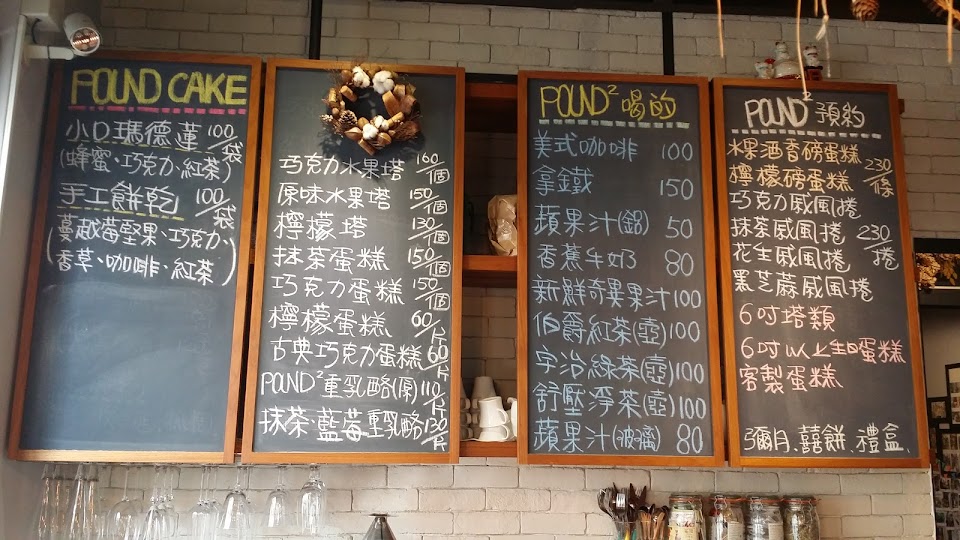 POUND CAKE
小口瑪德蓮 100/袋
(蜂蜜、巧克力、紅茶)
手工餅乾 100/袋
(蔓越莓堅果、巧克力、
香草、咖啡、紅茶)
巧克力水果塔 160/個
原味水果塔 150/個
檸檬塔 130/個
抹茶蛋糕 150/個
巧克力蛋糕 150/個
檸檬蛋糕 60/片
古典巧克力蛋糕 60/片
POUND²重乳酪(原) 110/片
抹茶 藍莓重乳酪 130/片
POUND² 喝的
美式咖啡 100
拿鐵 150
蘋果汁(鋁) 50
香蕉牛奶 80
新鮮奇異果汁 100
伯爵紅茶(壺) 100
宇治綠茶(壺) 100
舒壓淨茶(壺) 100
蘋果汁(玻璃) 80
POUND² 預約
水果酒香磅蛋糕 230/條
檸檬磅蛋糕
巧克力威風捲
抹茶威風捲 230/捲
花生威風捲
黑芝蔴威風捲
6吋塔類
6吋以上生日蛋糕
客製蛋糕
彌月、囍餅、禮盒